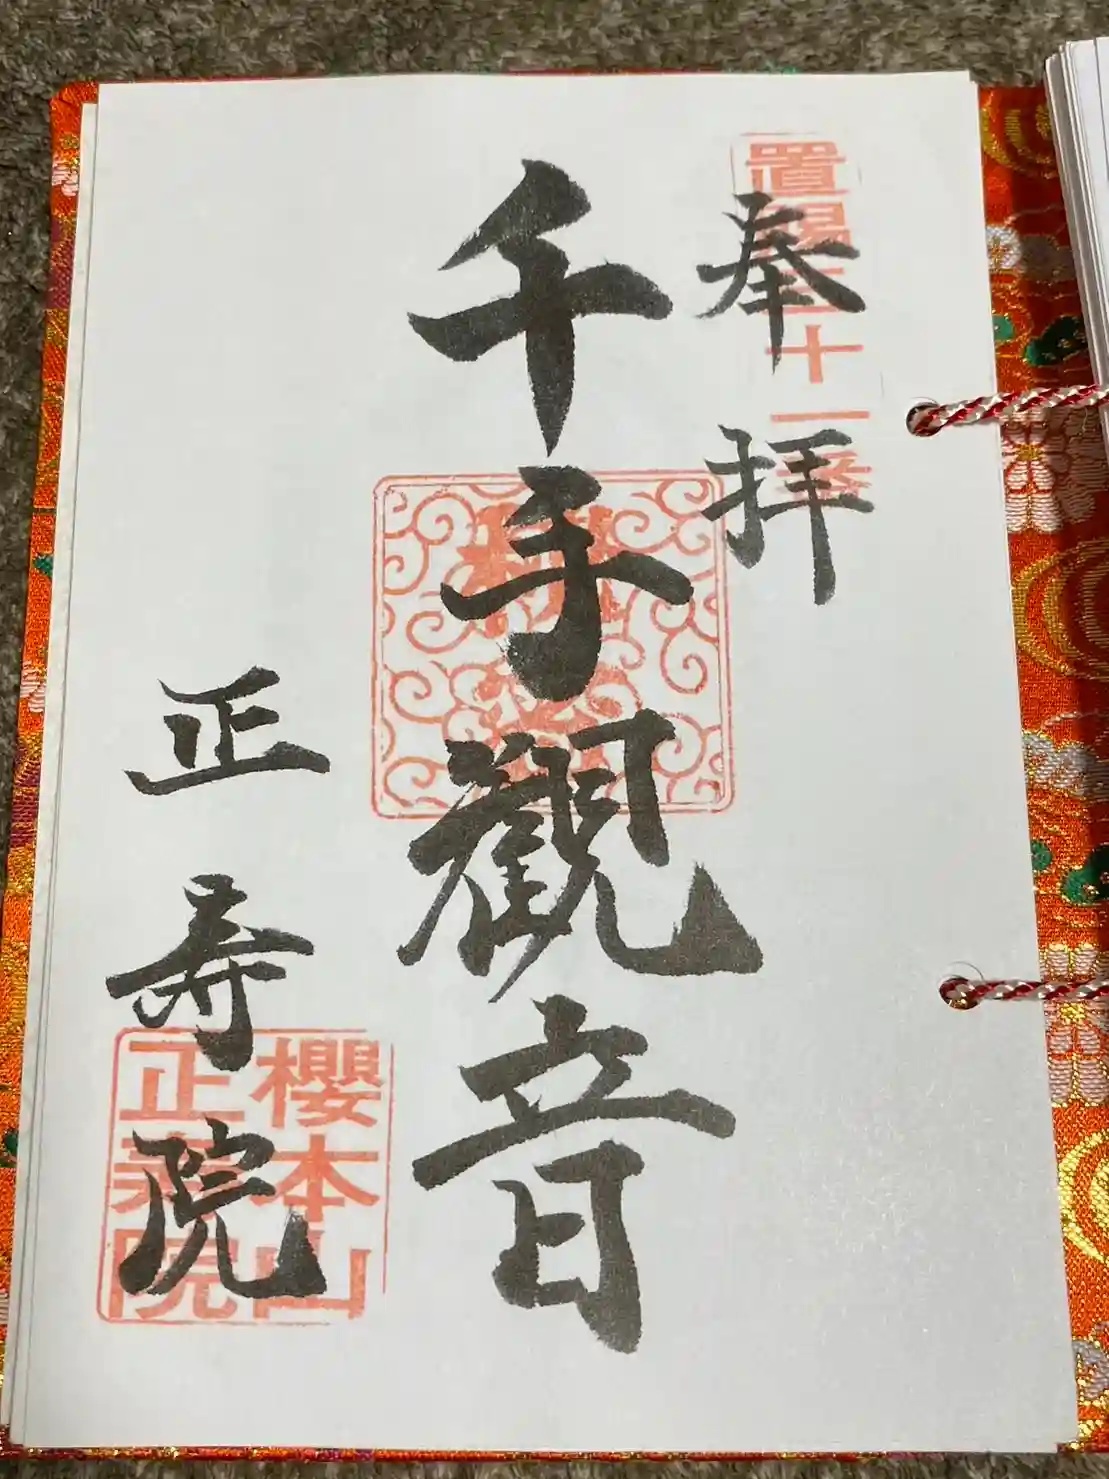 置賜三十一番
奉拝
千手觀音
正寿院
櫻本山
正寿院